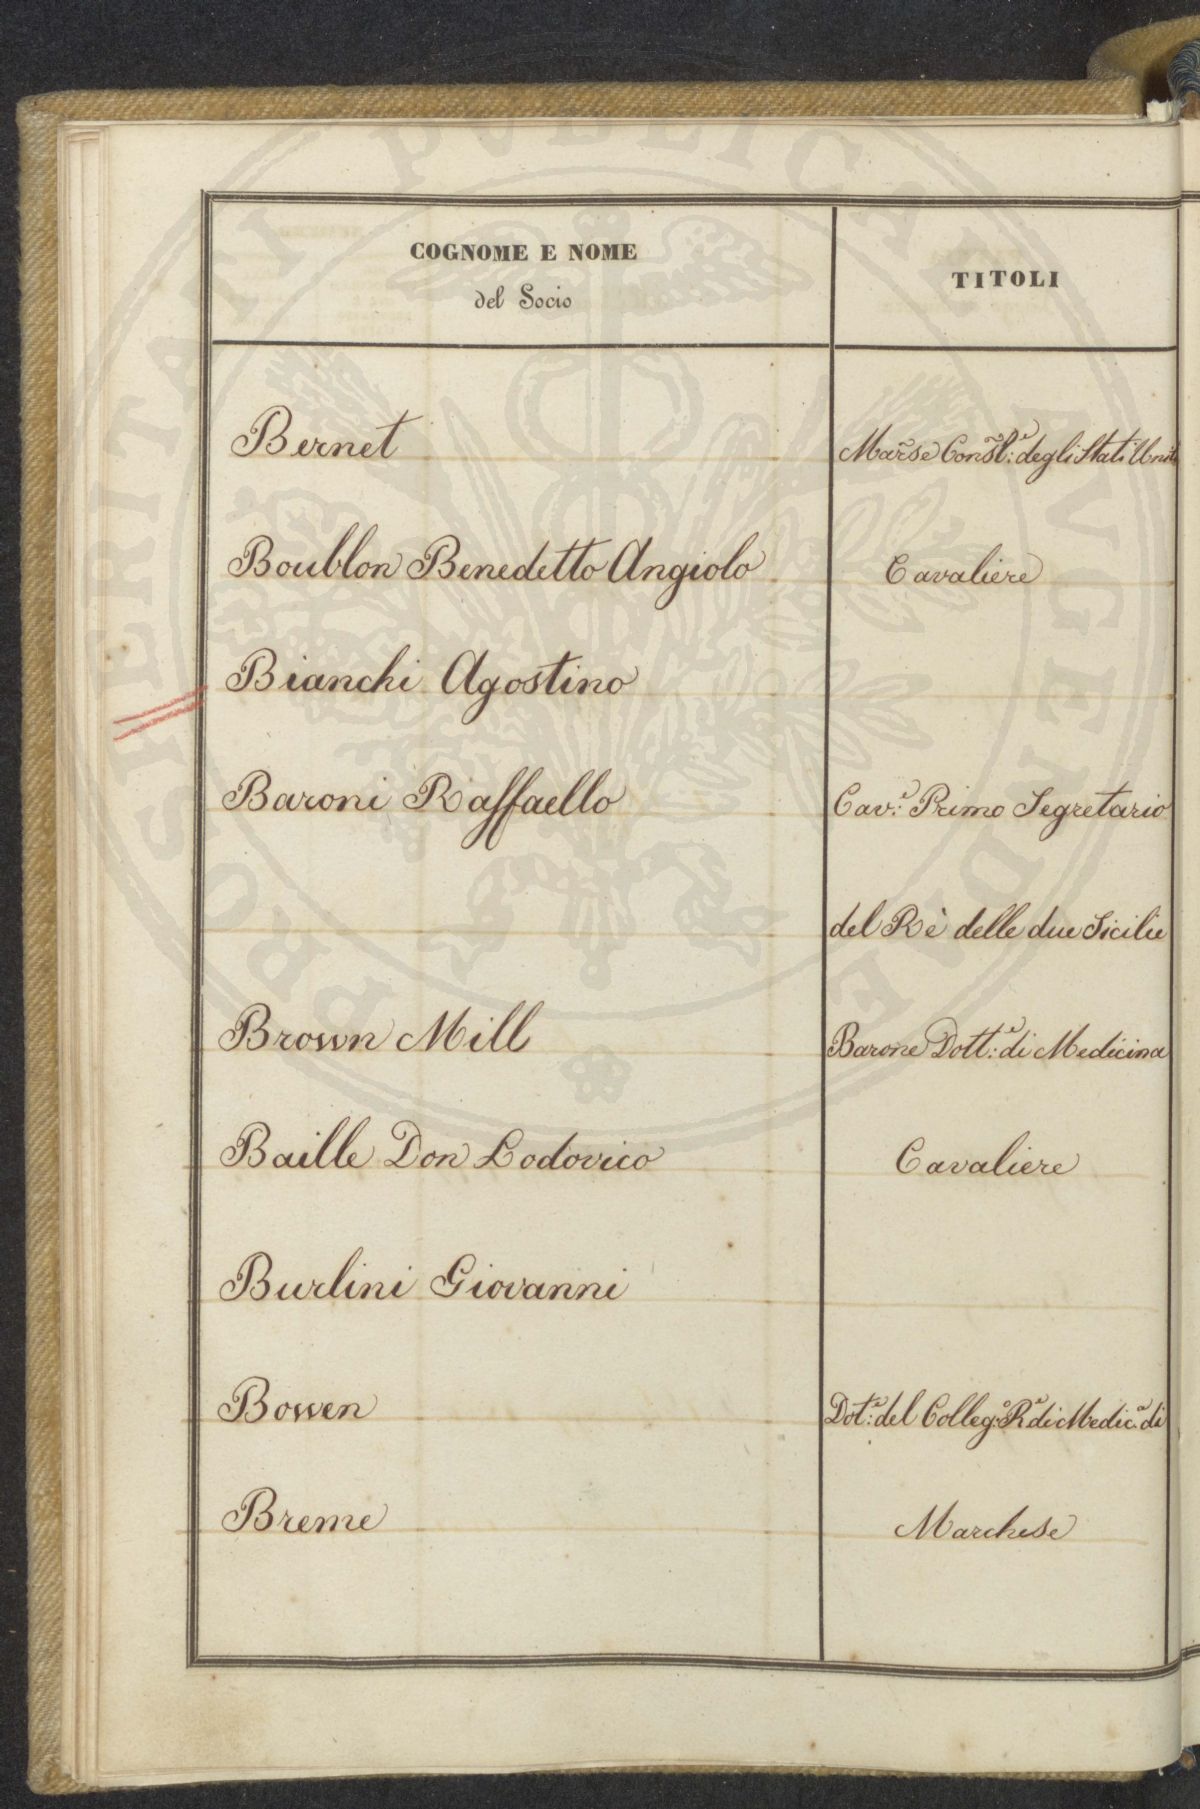 COGNOME E NOME
del Socio
TITOLI
Bernet
Marse Consl:e degli Stati Uniti
Boublon Benedetto Angiolo
Cavaliere
Bianchi Agostino
Baroni Raffaello
Cav:e Primo Segretario
del Rè delle due Sicilie
Brown Mill
Barone Dott:e di Medicina
Baille Don Lodovico
Cavaliere
Burlini Giovanni
Bowen
Dot:e del Colleg:o R.e di Medic:a di
Breme
Marchese
PROSPERITATI PVBLICAE AVGENDAE